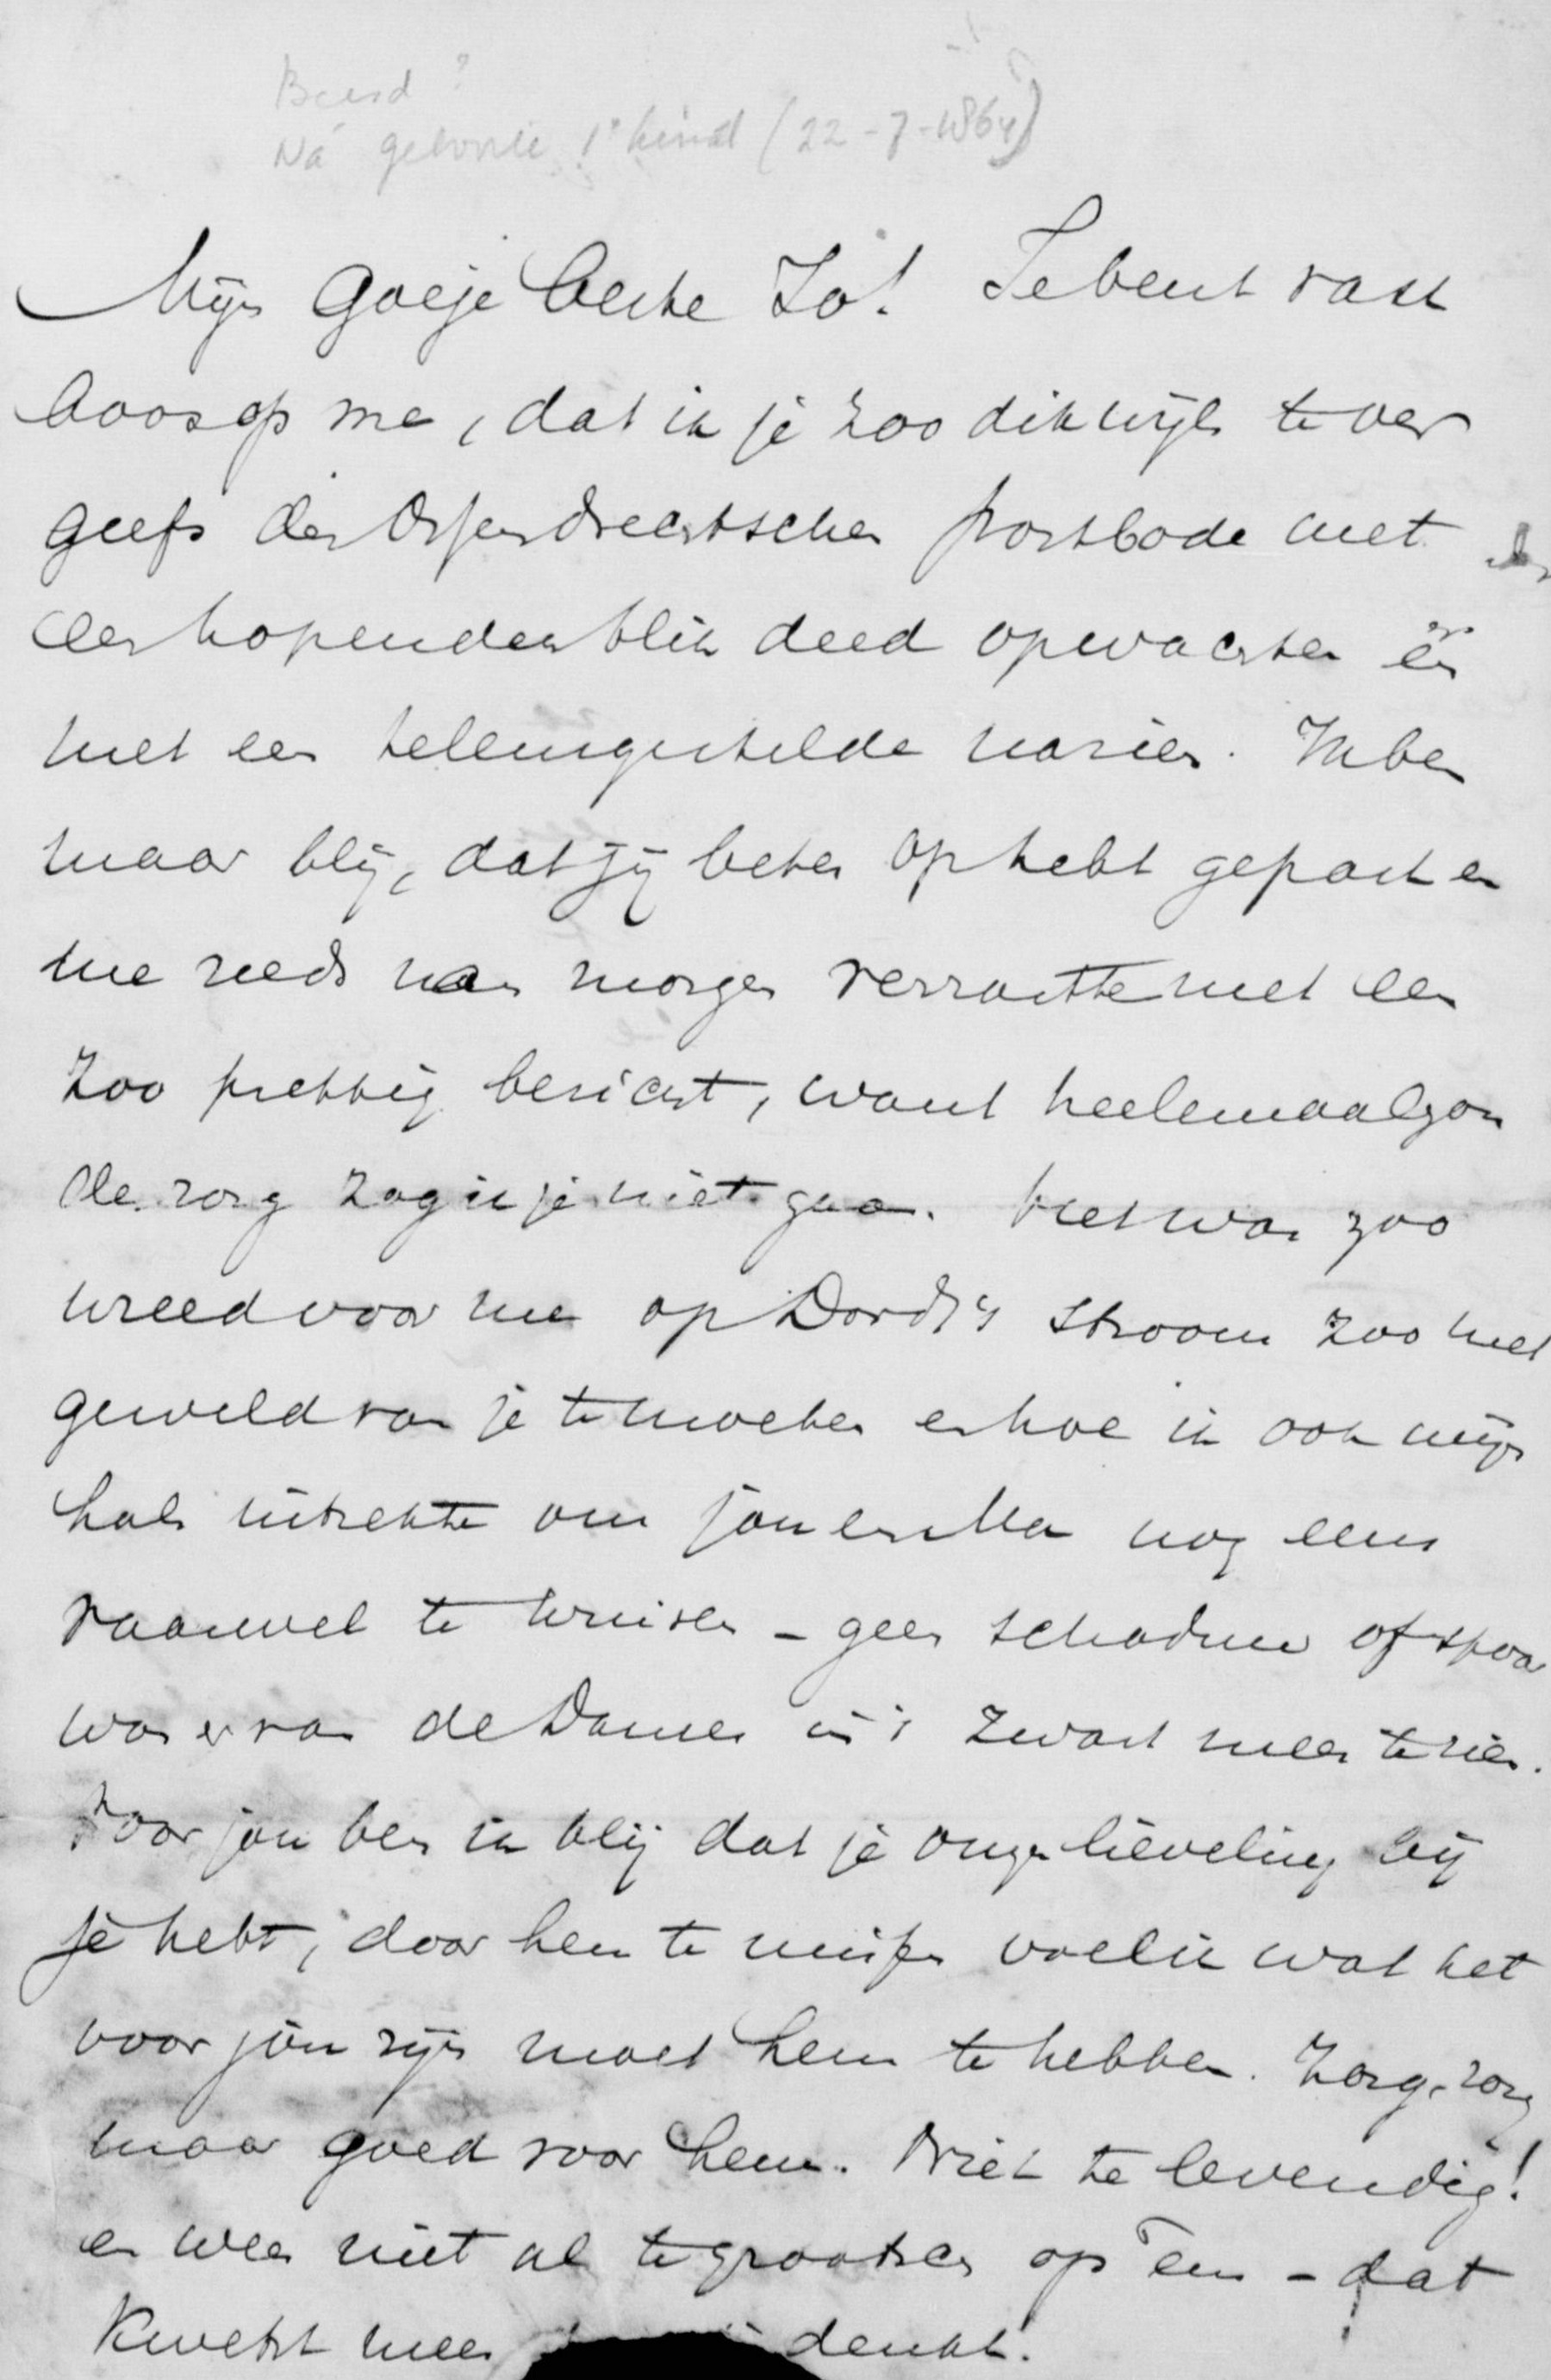 Ná geboorte 1e kind (22-7-1864)
Mijn goeje beste Jo! Je bent vast
boos op me, dat ik je zoo dikwijls te ver
geefs den Ossendrechtschen postbode met
een hopenden blik deed opwachten en
met een teleurgestelde nazien. Ik ben
maar blij, dat jij beter op hebt gepast en
me reeds van morgen verrastte met een
zoo prettig bericht, want heelemaal zon
der zorg zag ik je niet gaan. Het was zoo
wreed voor me op Dordt's stroom zoo met
geweld van je te moeten en hoe ik ook mijn
hals uitrekte om jou en Ma nog eens
vaarwel te wuiven – geen schaduw of spoor
was er van de Dames in 't zwart meer te zien.
Voor jou ben ik blij dat je onze lieveling bij
je hebt, door hem te missen voel ik wat het
voor jóu zijn moet hem te hebben. Zorg, zorg
maar goed voor hem. Niet te levendig!
en wees niet al te grootsch op 'em – dat
kwetst meer denkt.